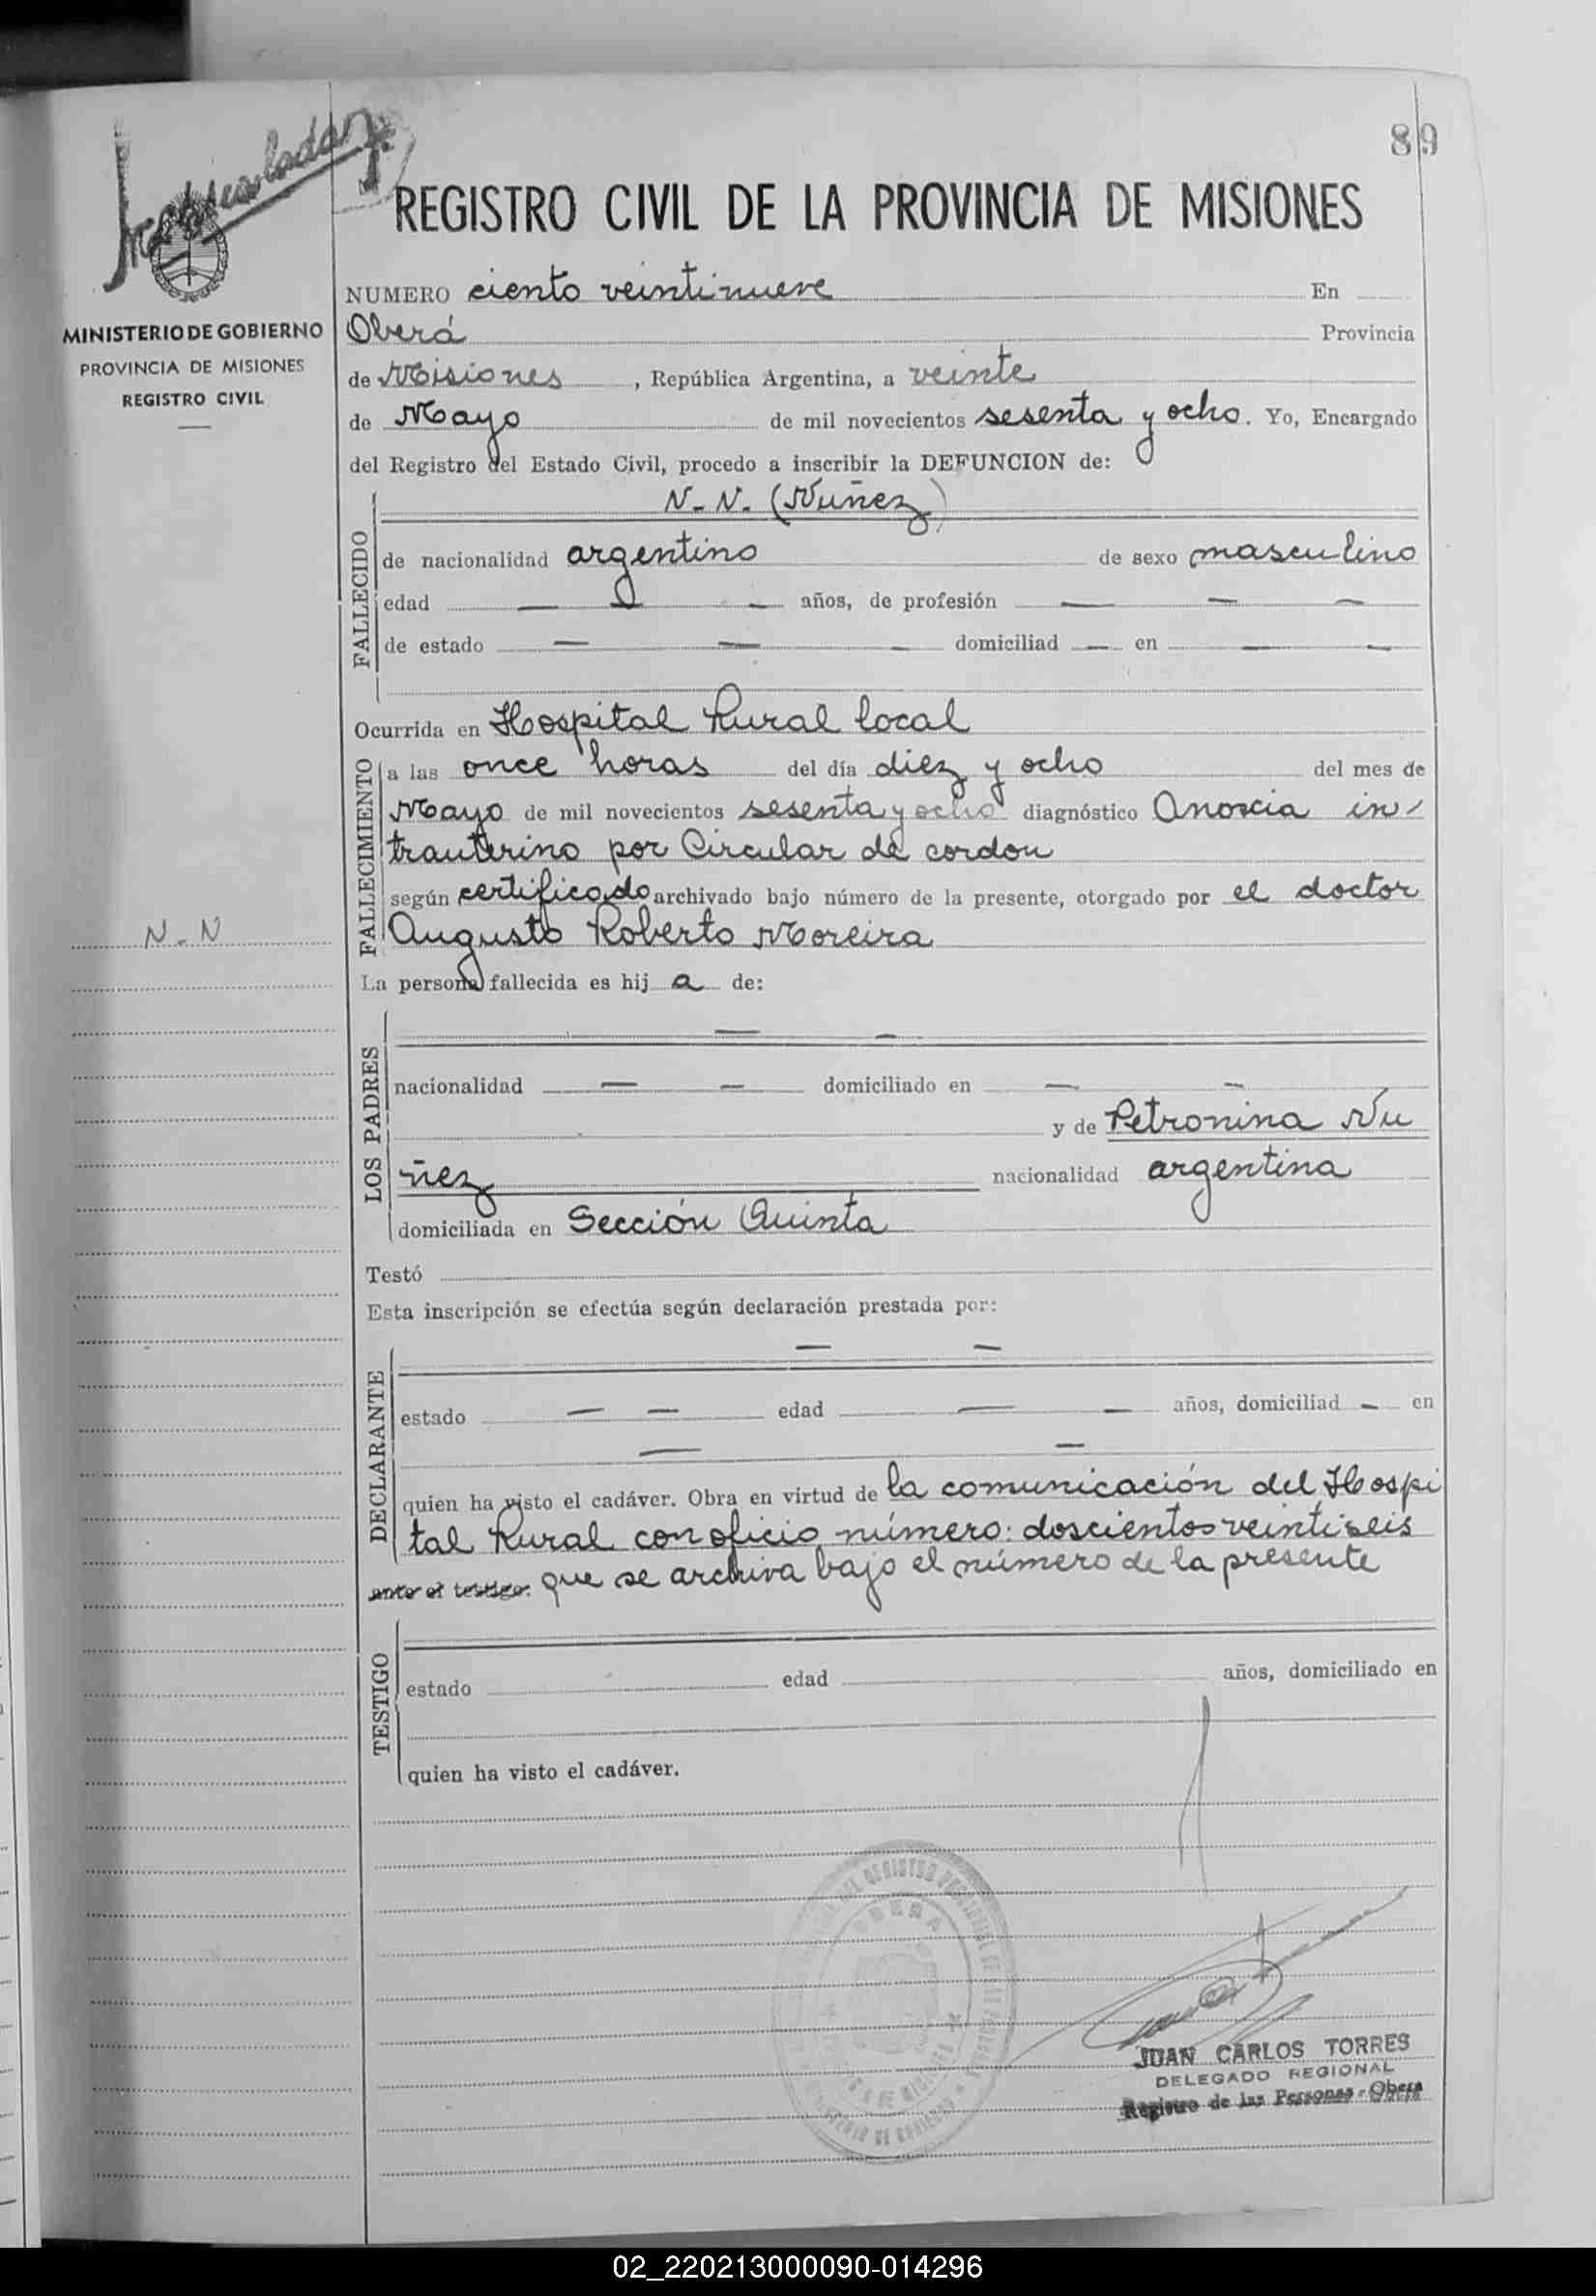 89
REGISTRO CIVIL DE LA PROVINCIA DE MISIONES
MINISTERIO DE GOBIERNO
PROVINCIA DE MISIONES
REGISTRO CIVIL
NUMERO ciento veintinueve En
Oberá Provincia
de Misiones, República Argentina, a veinte
de Mayo de mil novecientos sesenta y ocho. Yo, Encargado
del Registro del Estado Civil, procedo a inscribir la DEFUNCION de:
FALLECIDO
N. N. (Nuñez)
de nacionalidad argentino de sexo masculino
edad — — — años, de profesión — — —
de estado — — — domiciliad — en — —
Ocurrida en Hospital Rural local
FALLECIMIENTO
a las once horas del día diez y ocho del mes de
Mayo de mil novecientos sesenta y ocho diagnóstico Anoxia in-
trauterino por Circular de cordon
según certificado archivado bajo número de la presente, otorgado por el doctor
Augusto Roberto Moreira
N. N
La persona fallecida es hij a de:
LOS PADRES
— —
nacionalidad — — domiciliado en — —
y de Petronina Nu
ñez nacionalidad argentina
domiciliada en Sección Quinta
Testó
Esta inscripción se efectúa según declaración prestada por:
DECLARANTE
— —
estado — — edad — — años, domiciliad — en
— —
quien ha visto el cadáver. Obra en virtud de la comunicación del Hospi
tal Rural con oficio número: doscientos veintiseis
ante el testigo: que se archiva bajo el número de la presente
TESTIGO
estado edad años, domiciliado en
quien ha visto el cadáver.
OBERA
JUAN CARLOS TORRES
DELEGADO REGIONAL
Registro de las Personas - Obera
02_220213000090-014296